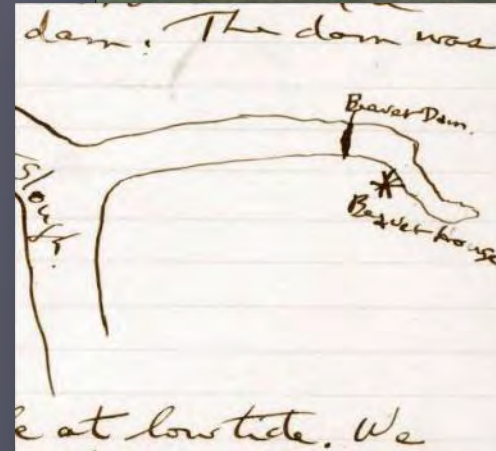 dam. The dam was
Beaver Dam.
Slough.
Beaver house
e at low tide. We